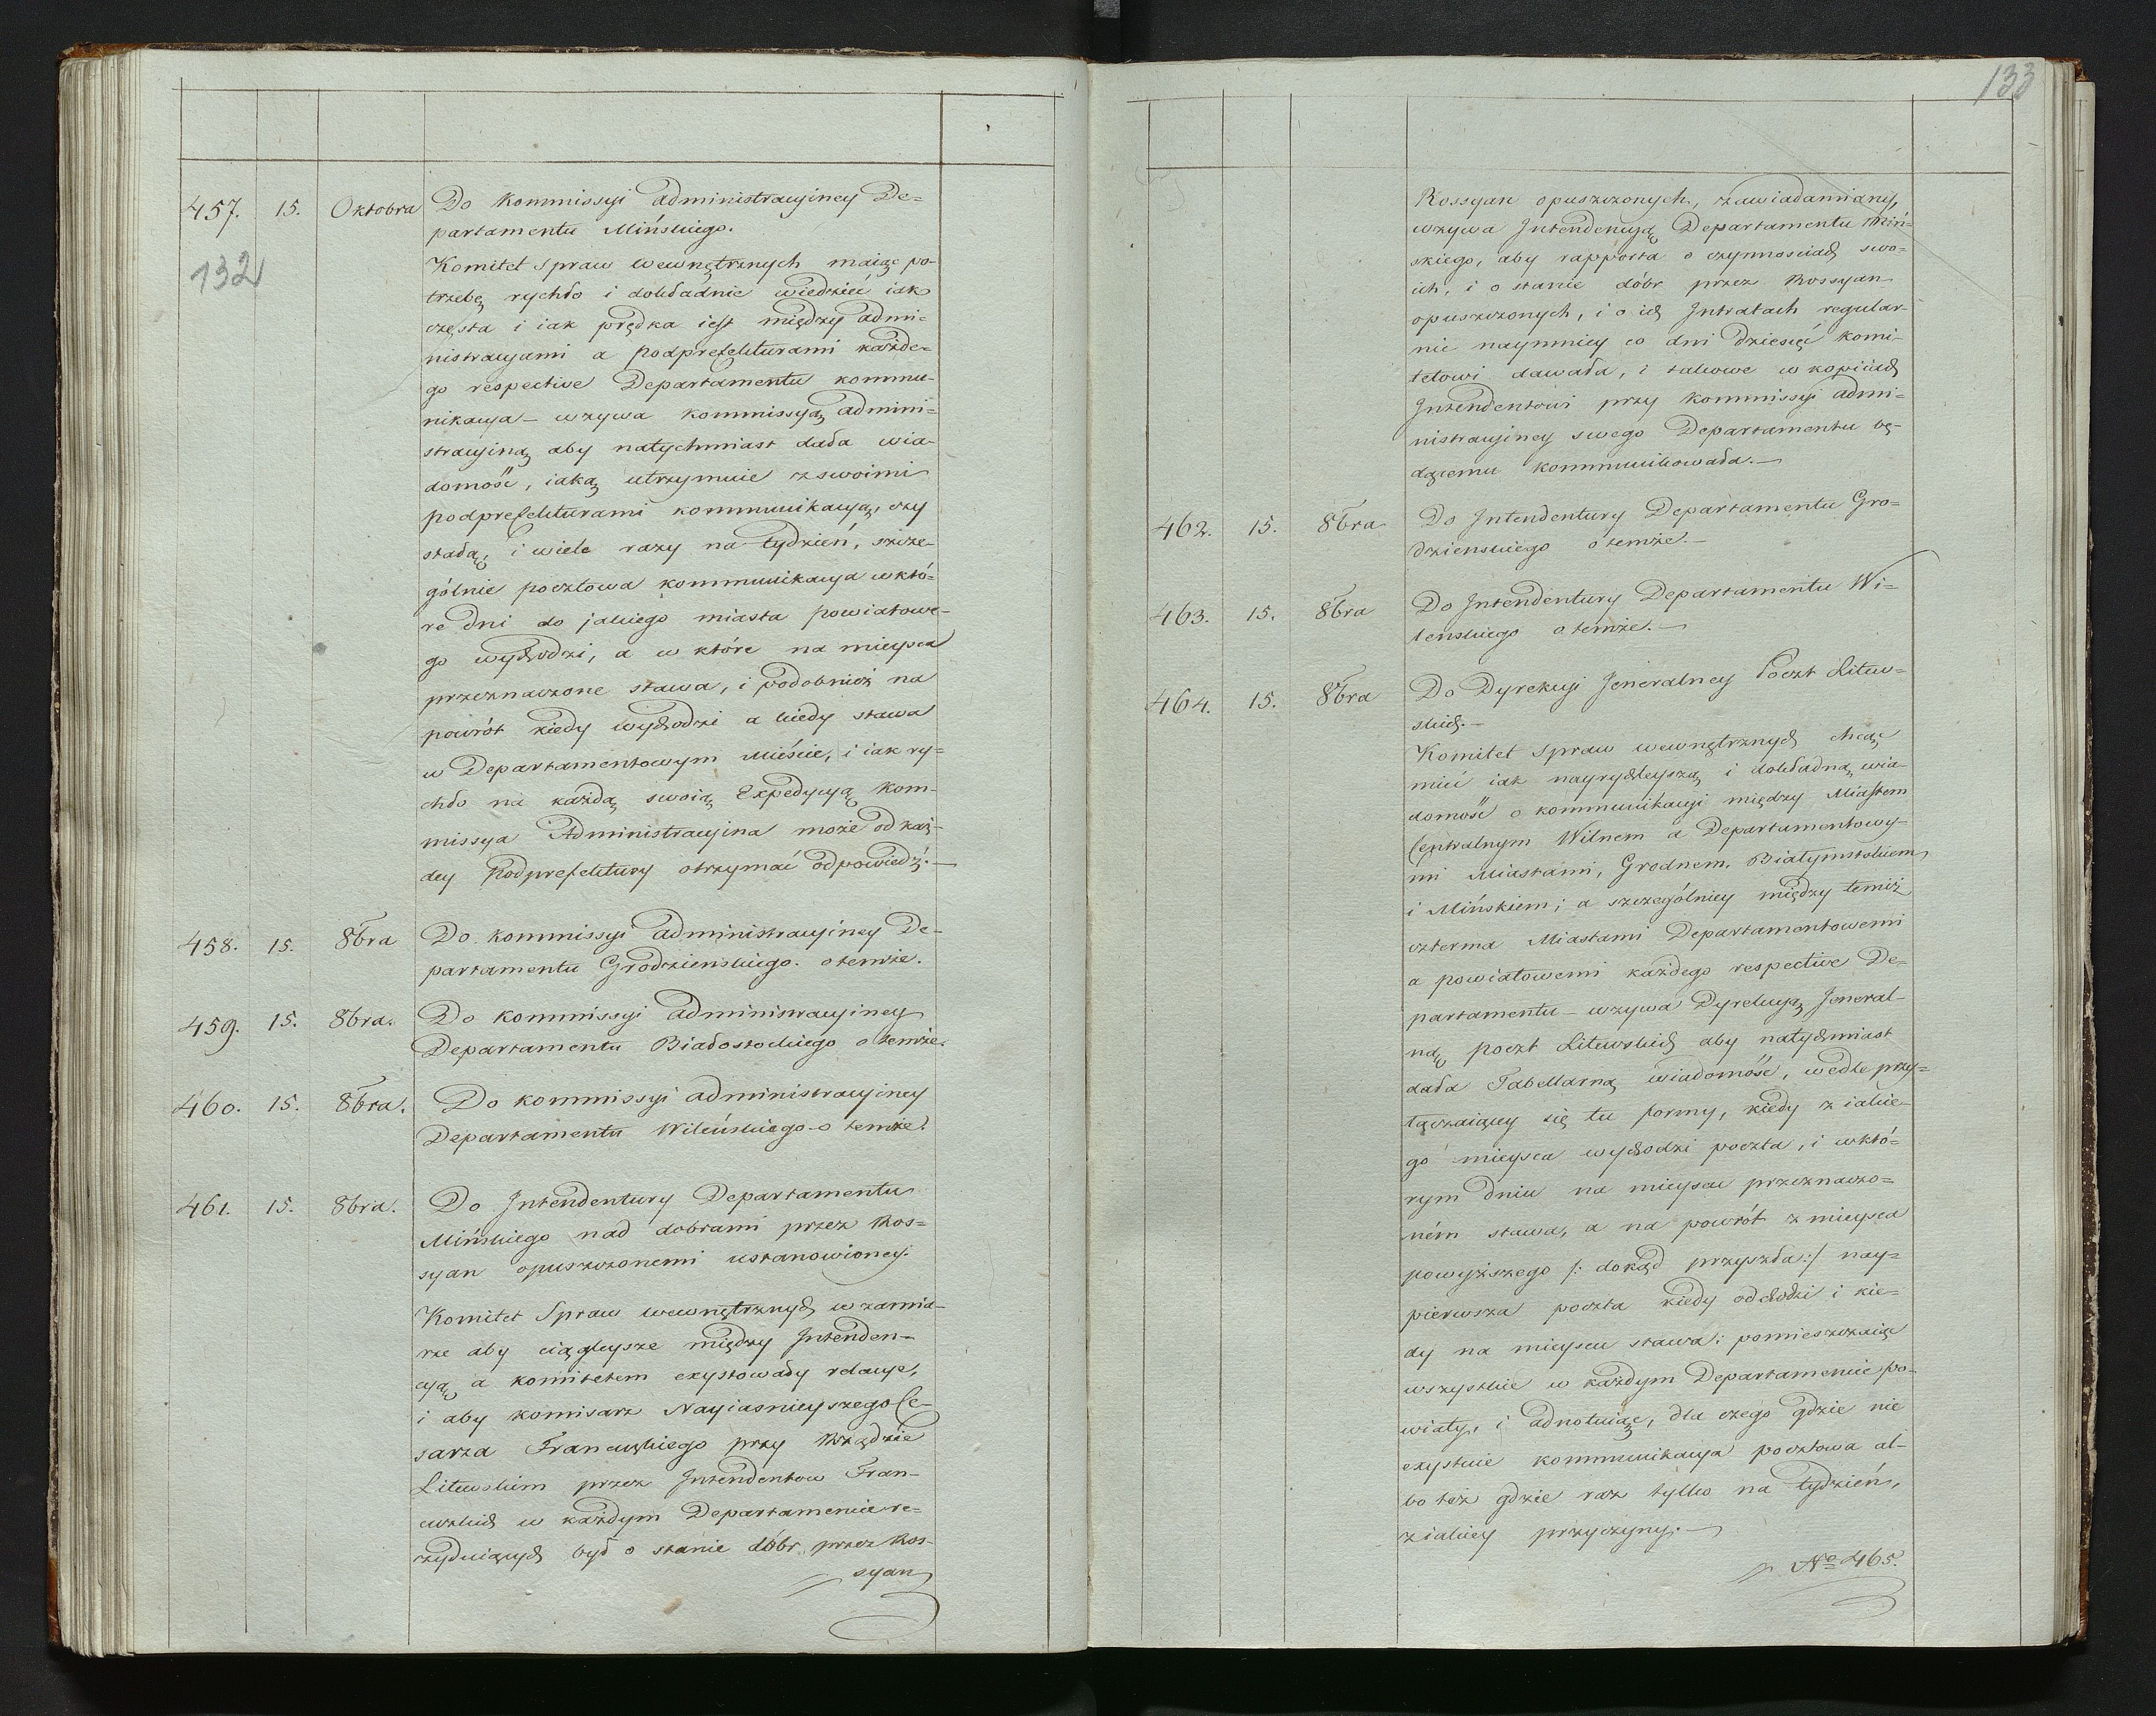 457. 15. Oktobra Do Kommissyi Administracyiney De-
partamentu Mińskiego.
132
Komitet Spraw wewnętrznych maiąc po-
trzebę rychło i dokładnie wiedzieć iak
częsta i iak prędka iest między admi-
nistracyami a podprefekturami każde-
go respective Departamentu kommu-
nikacya – wzywa kommissyą admini-
stracyiną aby natychmiast dała wia-
domość, iaką utrzymuie z swoimi
podprefekturami kommunikacyą, czy
stałą, i wiele razy na tydzień, szcze-
gólnie pocztowa kommunikacya w któ-
re dni do jakiego miasta powiatowe-
go wychodzi, a w które na mieysca
przeznaczone stawa, i podobnież na
powrót kiedy wychodzi a kiedy stawa
w Departamentowym Mieście, i iak ry-
chło na każdą swoią Expedycyą Kom-
missya Administracyina może od każ-
dey Podprefektury otrzymać odpowiedź. –
458. 15. 8bra Do kommissyi Administracyiney De-
partamentu Grodzienskiego. o temże.
459. 15. 8bra. Do kommissyi Administracyiney
Departamentu Białostockiego o temże.
460. 15. 8bra. Do kommissyi administracyiney
Departamentu Wileńskiego o temże.
461. 15. 8bra. Do Intendentury Departamentu
Mińskiego nad dobrami przez Ros-
syan opuszczonemi ustanowioney.
Komitet Spraw wewnętrznych w zamia-
rze aby ciągleysze między Intenden-
cyą a komitetem exystowały relacye,
i aby komisarz Nayiasnieyszego Ce-
sarza Francuskiego przy Rządzie
Litewskim przez Intendentow Fran-
cuzkich w każdym Departamencie re-
zyduiących był o stanie dóbr przez Ros-
syan
133
Rossyan opuszczonych, zawiadamiany,
wzywa Intendencyą Departamentu Miń-
skiego, aby rapporta o czynnościach swo-
ich, i o stanie dóbr przez Rossyan
opuszczonych, i o ich Intratach regular-
nie naymniey co dni dziesięć komi-
tetowi dawała, i takowe w kopiiach
Intendentowi przy kommissyi admi-
nistracyiney swego Departamentu bę-
dącemu kommunikowała. –
462. 15. 8bra Do Intendentury Departamentu Gro-
dzienskiego o temże. –
463. 15. 8bra Do Intendentury Departamentu Wi-
lenskiego o temże. –
464. 15. 8bra Do Dyrekcyi Jeneralney Poczt Litew-
skich. –
Komitet Spraw wewnętrznych chcąc
mieć iak nayrychleyszą i dokładną wia-
domość o kommunikacyi między Miastem
Centralnym Wilnem a Departamentowy-
mi Miastami, Grodnem, Białymstokiem
i Mińskiem; a szczególniey między temiż
czterma Miastami Departamentowemi
a powiatowemi każdego respective De-
partamentu – wzywa Dyrekcyą Jeneral-
ną poczt Litewskich aby natychmiast
dała Tabellarną wiadomość, wedle przy-
łączaiącey się tu formy, kiedy z iakie-
go mieysca wychodzi poczta, i w któ-
rym dniu na mieyscu przeznaczo-
ném stawa, a na powrót z mieysca
powyższego /: dokąd przyszła :/ nay-
pierwsza poczta kiedy odchodzi i kie-
dy na mieyscu stawa; pomieszczaiąc
wszystkie w każdym Departamencie po-
wiaty, i adnotuiąc, dla czego gdzie nie
exystuie kommunikacya pocztowa al-
bo też gdzie raz tylko na tydzień,
z iakiey przyczyny. –
No 465.